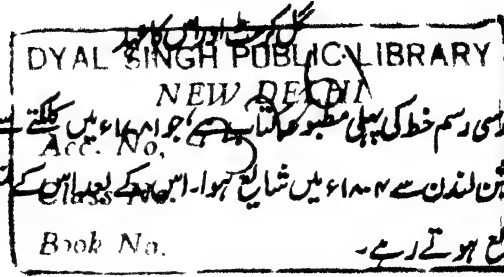 گل کرسٹ اور اس کا عہد
DYAL SINGH PUBLIC LIBRARY
NEW DELHI
اسی رسم خط کی پہلی مطبوعہ کتاب ہے، جو ۱۸۰۱ء میں کلکتے سے
Acc. No.
لندن سے ۱۸۰۴ء میں شایع ہوا۔ اس کے بعد اس کے
Class No.
Book No.
ہوتے رہے۔